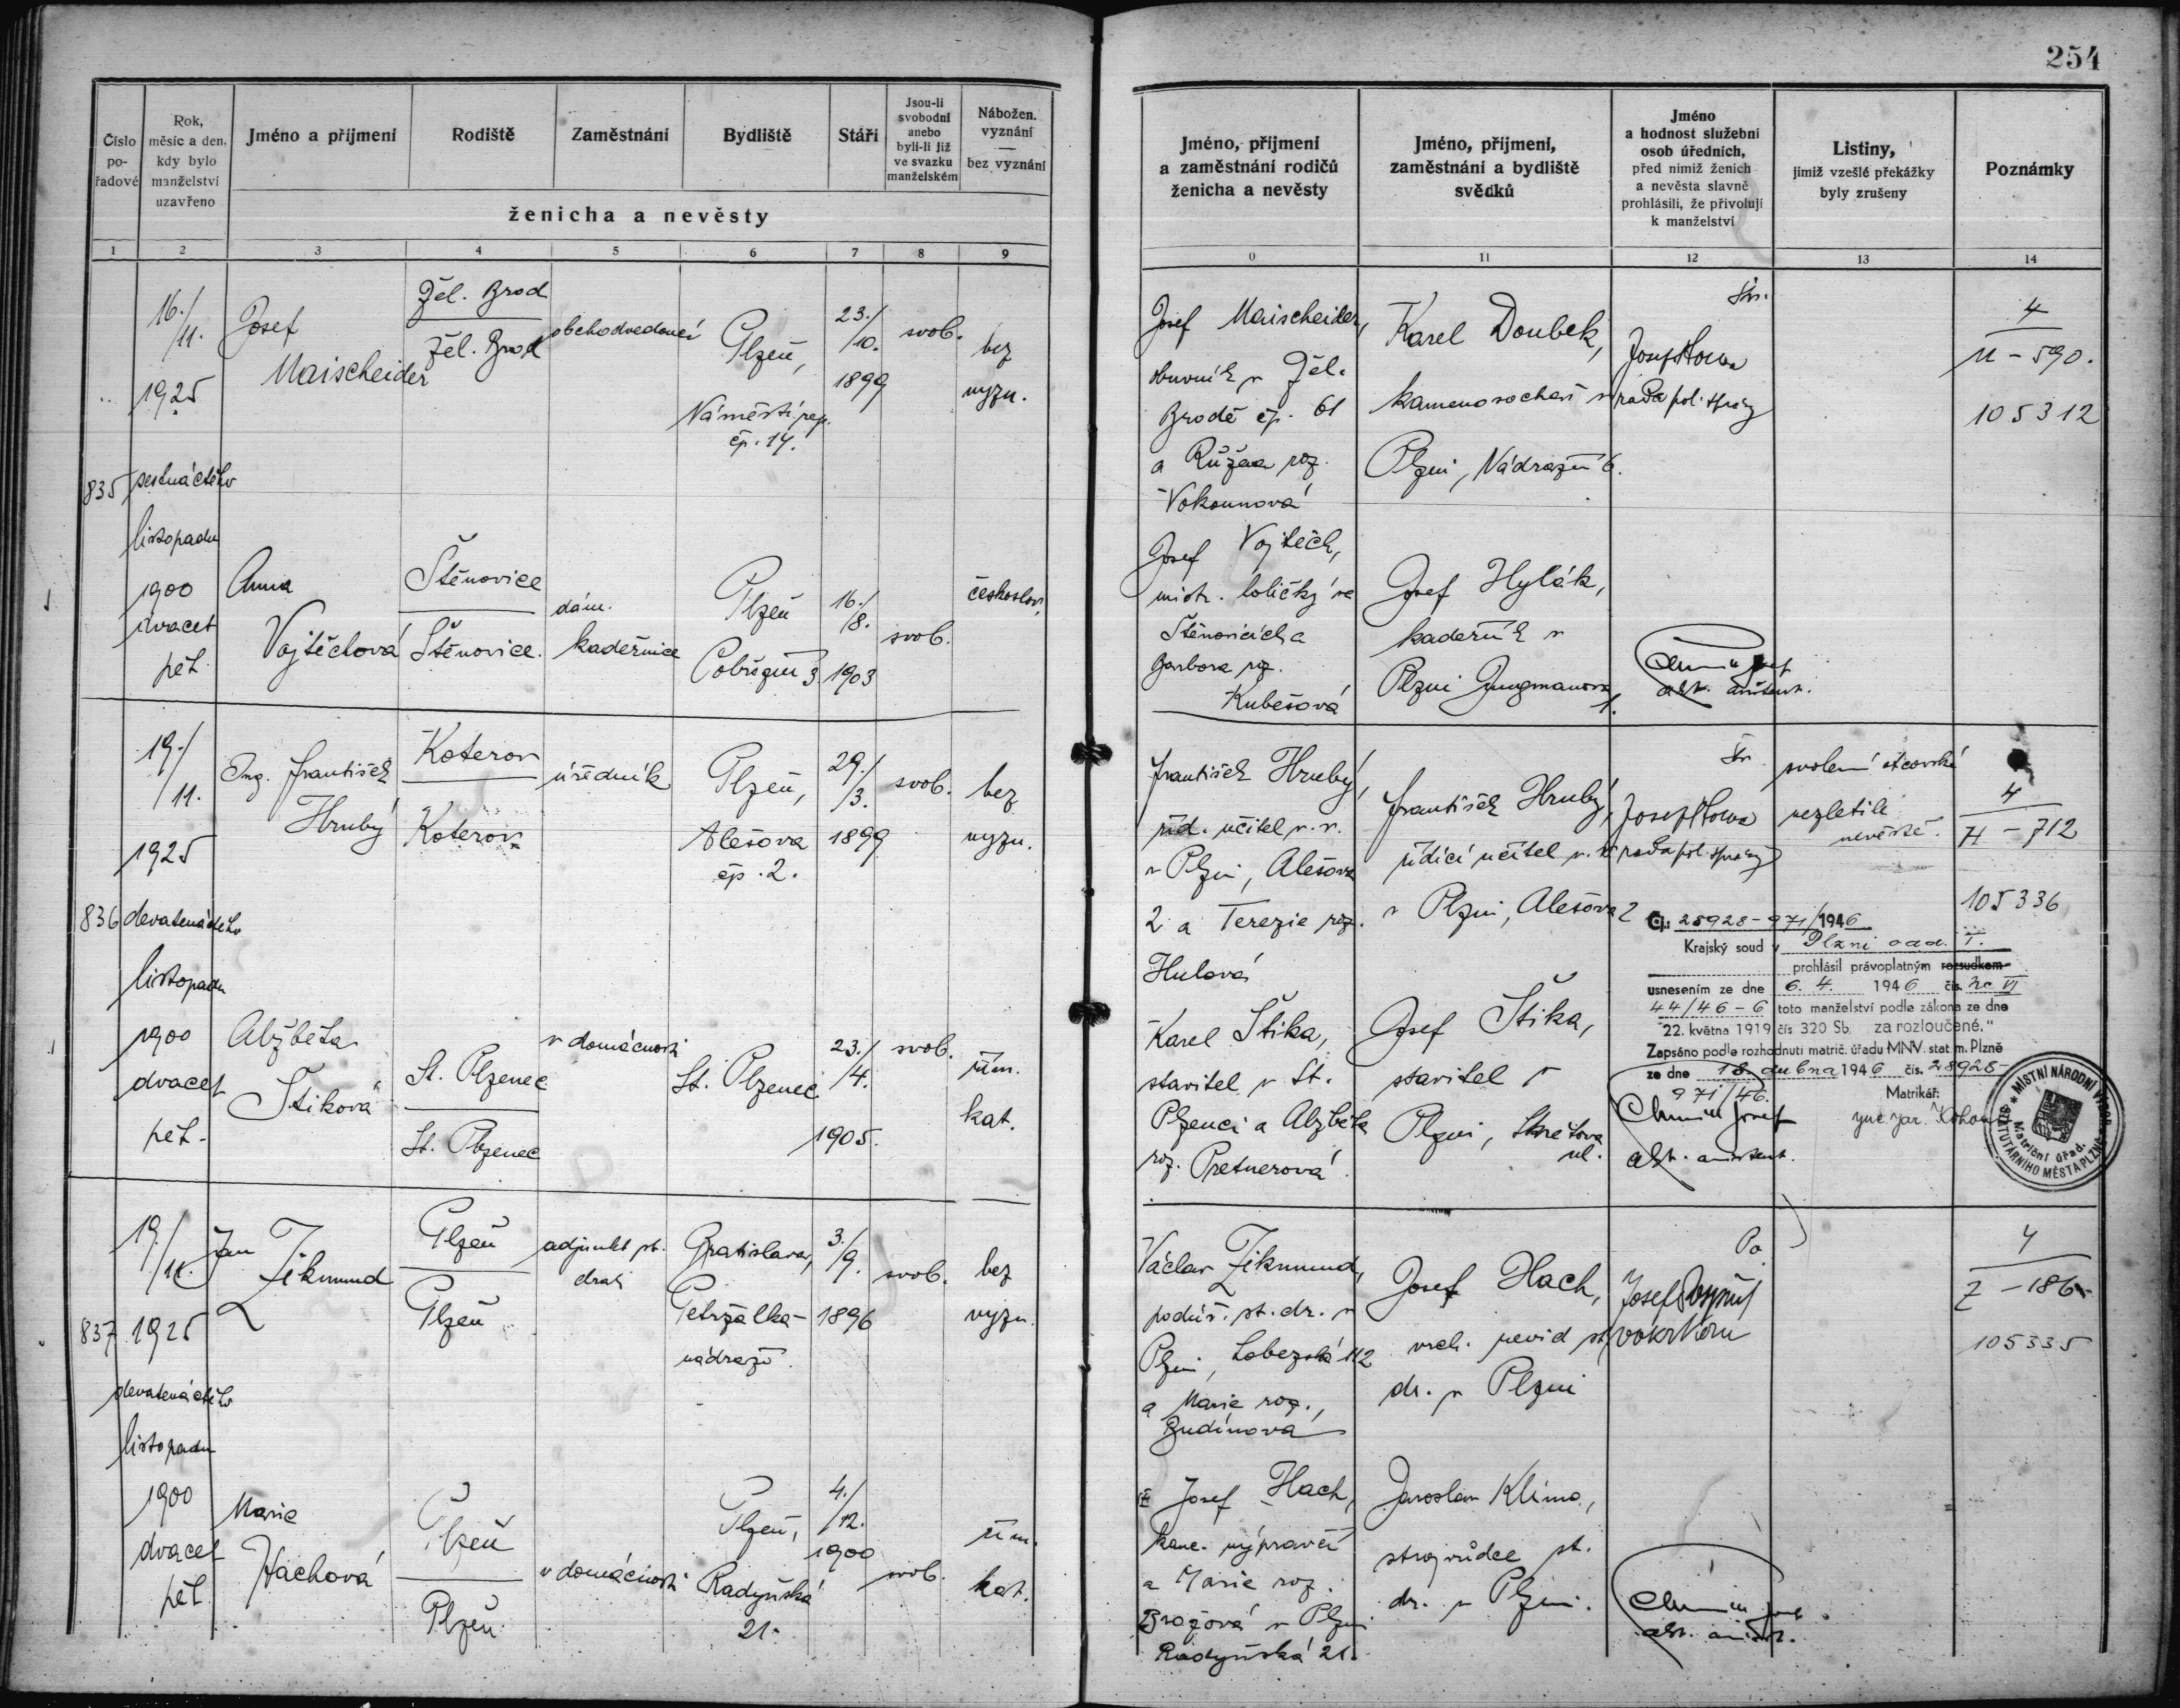 254
Číslo po-řadové
Rok, měsíc a den, kdy bylo manželství uzavřeno
Jméno a příjmení
Rodiště
Zaměstnání
Bydliště
Stáří
Jsou-li svobodní anebo byli-li již ve svazku manželském
Nábožen. vyznání — bez vyznání
ženicha a nevěsty
Jméno, příjmení a zaměstnání rodičů ženicha a nevěsty
Jméno, příjmení, zaměstnání a bydliště svědků
Jméno a hodnost služební osob úředních, před nimiž ženich a nevěsta slavně prohlásili, že přivolují k manželství
Listiny, jimiž vzešlé překážky byly zrušeny
Poznámky
1 2 3 4 5 6 7 8 9
0 11 12 13 14
835
16./11.
1925
šestnáctého
listopadu
1900
dvacet
pět
Josef
Maischeider
Žel. Brod
Žel. Brod
obchodvedoucí
Plzeň,
Náměstí rep.
čp. 14.
23./10.
1899
svob.
bez
vyzn.
Anna
Vojtěchová
Štěnovice
Štěnovice.
dám.
kadeřnice
Plzeň
3
16./8.
1903
svob.
českoslov.
Josef Maischeider,
obuvník v Žel.
Brodě čp. 61
a Růžena roz.
Vokounová
Josef Vojtěch,
mistr. holičský ve
Štěnovicích a
Barbora roz.
Kubešová
Karel Doubek,
kamenosochař v
Plzni, Nádražní 6.
Josef Hylák,
kadeřník v
Plzni Jungmanova
1.
rada pol. správy
4
M - 590.
105312
836
19./11.
1925
devatenáctého
listopadu
1900
dvacet
pět.
Ing. František
Hrubý
Koterov
Koterov
úředník
Plzeň,
Alešova
čp. 2.
29./3.
1899
svob.
bez
vyzn.
Alžběta
Štiková
St. Plzenec
St. Plzenec
v domácnosti
St. Plzenec
23./4.
1905.
svob.
řím.
kat.
František Hrubý,
říd. učitel v. v.
v Plzni, Alešova
2 a Terezie roz.
Hulová
Karel Štika,
stavitel v St.
Plzenci a Alžběta
roz. Pretnerová
František Hrubý,
řídící učitel v. v.
v Plzni, Alešova 2
Josef Štika,
stavitel v
Plzni, Skrétova
ul.
rada pol. správy
svolení otcovské
nezletilé
nevěstě.
4
H - 712
105336
Čj.: 28928-971/1946
Krajský soud v Plzni odd. I.
prohlásil právoplatným rozsudkem
usnesením ze dne 6. 4. 1946 čís. Nc VI
44/46-6 toto manželství podle zákona ze dne
22. května 1919 čís 320 Sb. za rozloučené."
Zapsáno podle rozhodnutí matrič. úřadu MNV. stat. m. Plzně
ze dne 18. dubna 1946 čís. 28928
971/46.
Matrikář:
MÍSTNÍ NÁRODNÍ VÝBOR STATUTÁRNÍHO MĚSTA PLZNĚ
Matriční úřad.
837
19./11.
1925
devatenáctého
listopadu
1900
dvacet
pět
Jan
Zikmund
Plzeň
Plzeň
adjunkt st.
drah
Bratislava,
Petržalka-
nádraží.
3./9.
1896
svob.
bez
vyzn.
Marie
Hachová
Plzeň
Plzeň
v domácnosti
Plzeň,
Radyňská
21.
4./12.
1900
svob.
řím.
kat.
Václav Zikmund,
podúř. st. dr. v
Plzni, Lobezská 112
a Marie roz.,
Budínová
Josef Hach,
kanc. výpravčí
a Marie roz.
Brožová v Plzni
Radyňská 21.
Josef Hach,
vrch. revid st.
dr. v Plzni
Jaroslav Klima,
strojvůdce st.
dr. v Plzni.
Josef Pospíšil
4
105335